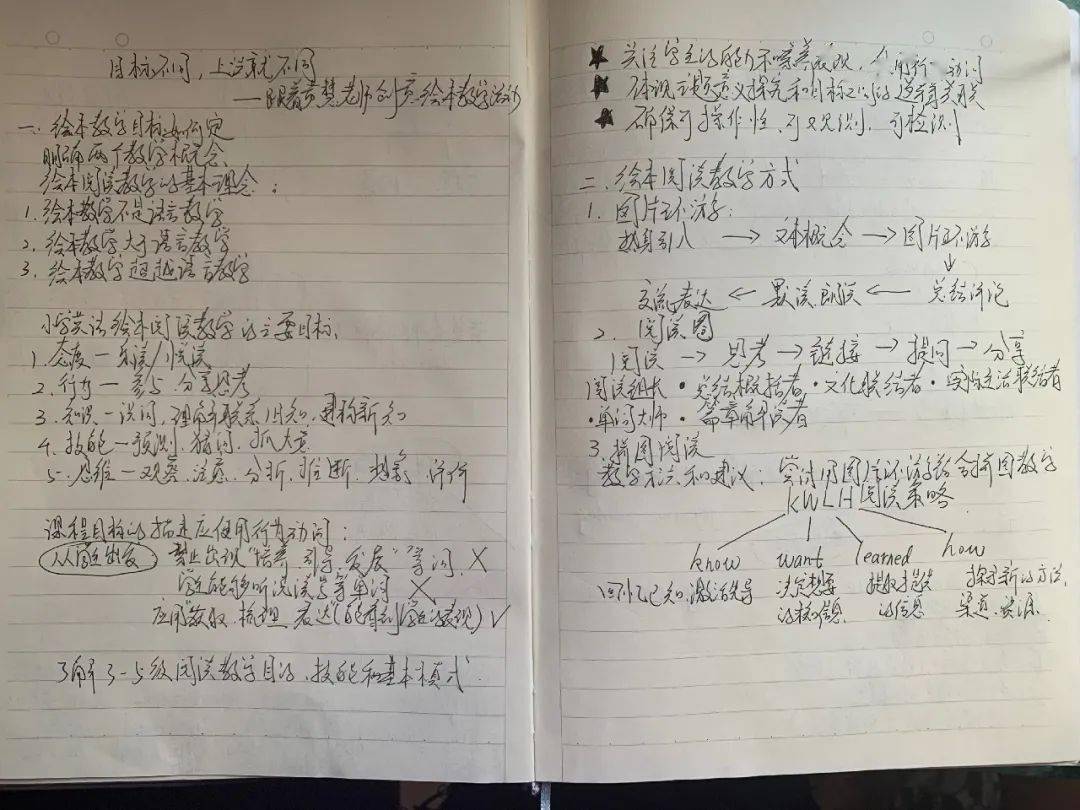 目标不同，上法就不同
——跟着黄慧老师的竞绘本教学活动
一、绘本教学目标如何定
明确两个教学概念
绘本阅读教学的基本理念：
1. 绘本教学不是语言教学
2. 绘本教学大于语言教学
3. 绘本教学超越语言教学
小学英语绘本阅读教学的主要目标
1. 态度—乐读/悦读
2. 行为—参与 分享思考
3. 知识—识词，理解联系旧知，建构新知
4. 技能—预测，猜词，抓大意
5. 思维—观察、注意、分析、推断、想象、评价
课程目标的描述应使用行为动词：
从学生出发 禁止出现“培养 引导，发展”等词，×
学生能够听说读写等单词 ×
应用“获取、梳理、表达（能看到学生的表现）✓
了解3-5级阅读教学目的、技能和基本模式
★ 关注学生的能力
★ 体现主题意义探究和目标之间的逻辑关联
★ 确保可操作性，可观测，可检测
二、绘本阅读教学方式
1. 图片环游：
热身引入 → 文本概念 → 图片环游
↓
交流表达 ← 默读朗读 ← 总结评论
2. 阅读圈
阅读 → 思考 → 链接 → 提问 → 分享
阅读组长·总结概括者·文化联结者·实际生活联结者
·单词大师·篇章解读者
3. 拼图阅读
教学方法和建议：尝试用图片环游结合拼图教学
KWLH阅读策略
know want learned how
回忆已知，激活先导 决定想要 提取提供 探寻新的方法，
的核心信息 的信息 渠道、资源